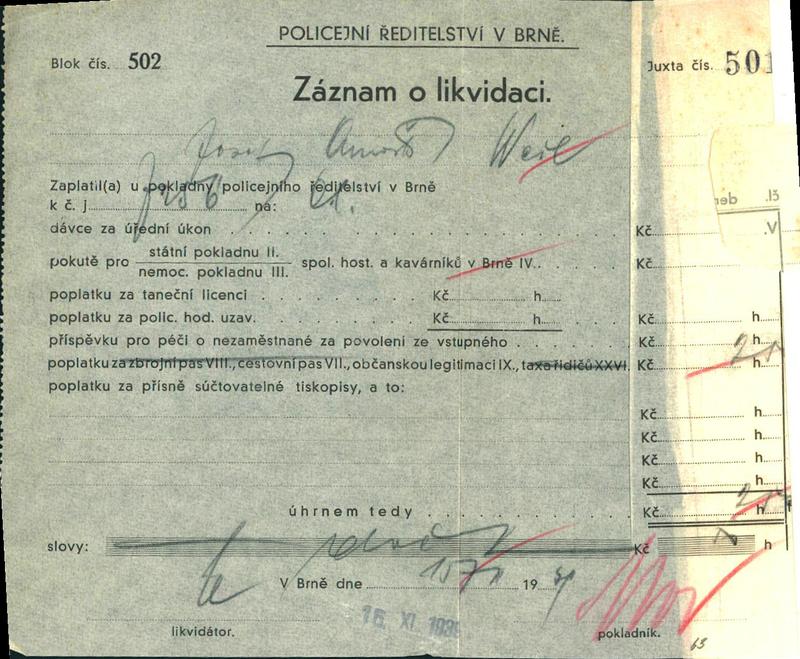 POLICEJNÍ ŘEDITELSTVÍ V BRNĚ.
Blok čís. 502
Juxta čís. 501
Záznam o likvidaci.
Josef Arnošt Weil
Zaplatil(a) u pokladny policejního ředitelství v Brně
k č. j. na:
čl. den
dávce za úřední úkon Kč V.
pokutě pro státní pokladnu II. spol. host. a kavárníků v Brně IV. Kč
nemoc. pokladnu III.
poplatku za taneční licenci Kč h
poplatku za polic. hod. uzav. Kč h Kč h
příspěvku pro péči o nezaměstnané za povolení ze vstupného Kč h
poplatku za zbrojní pas VIII., cestovní pas VII., občanskou legitimaci IX., taxa řidičů XXVI. Kč h
poplatku za přísně súčtovatelné tiskopisy, a to:
Kč h
Kč h
Kč h
Kč h
úhrnem tedy Kč h
slovy: Kč h
V Brně dne 19
16. XI. 1939
likvidátor.
pokladník.
63